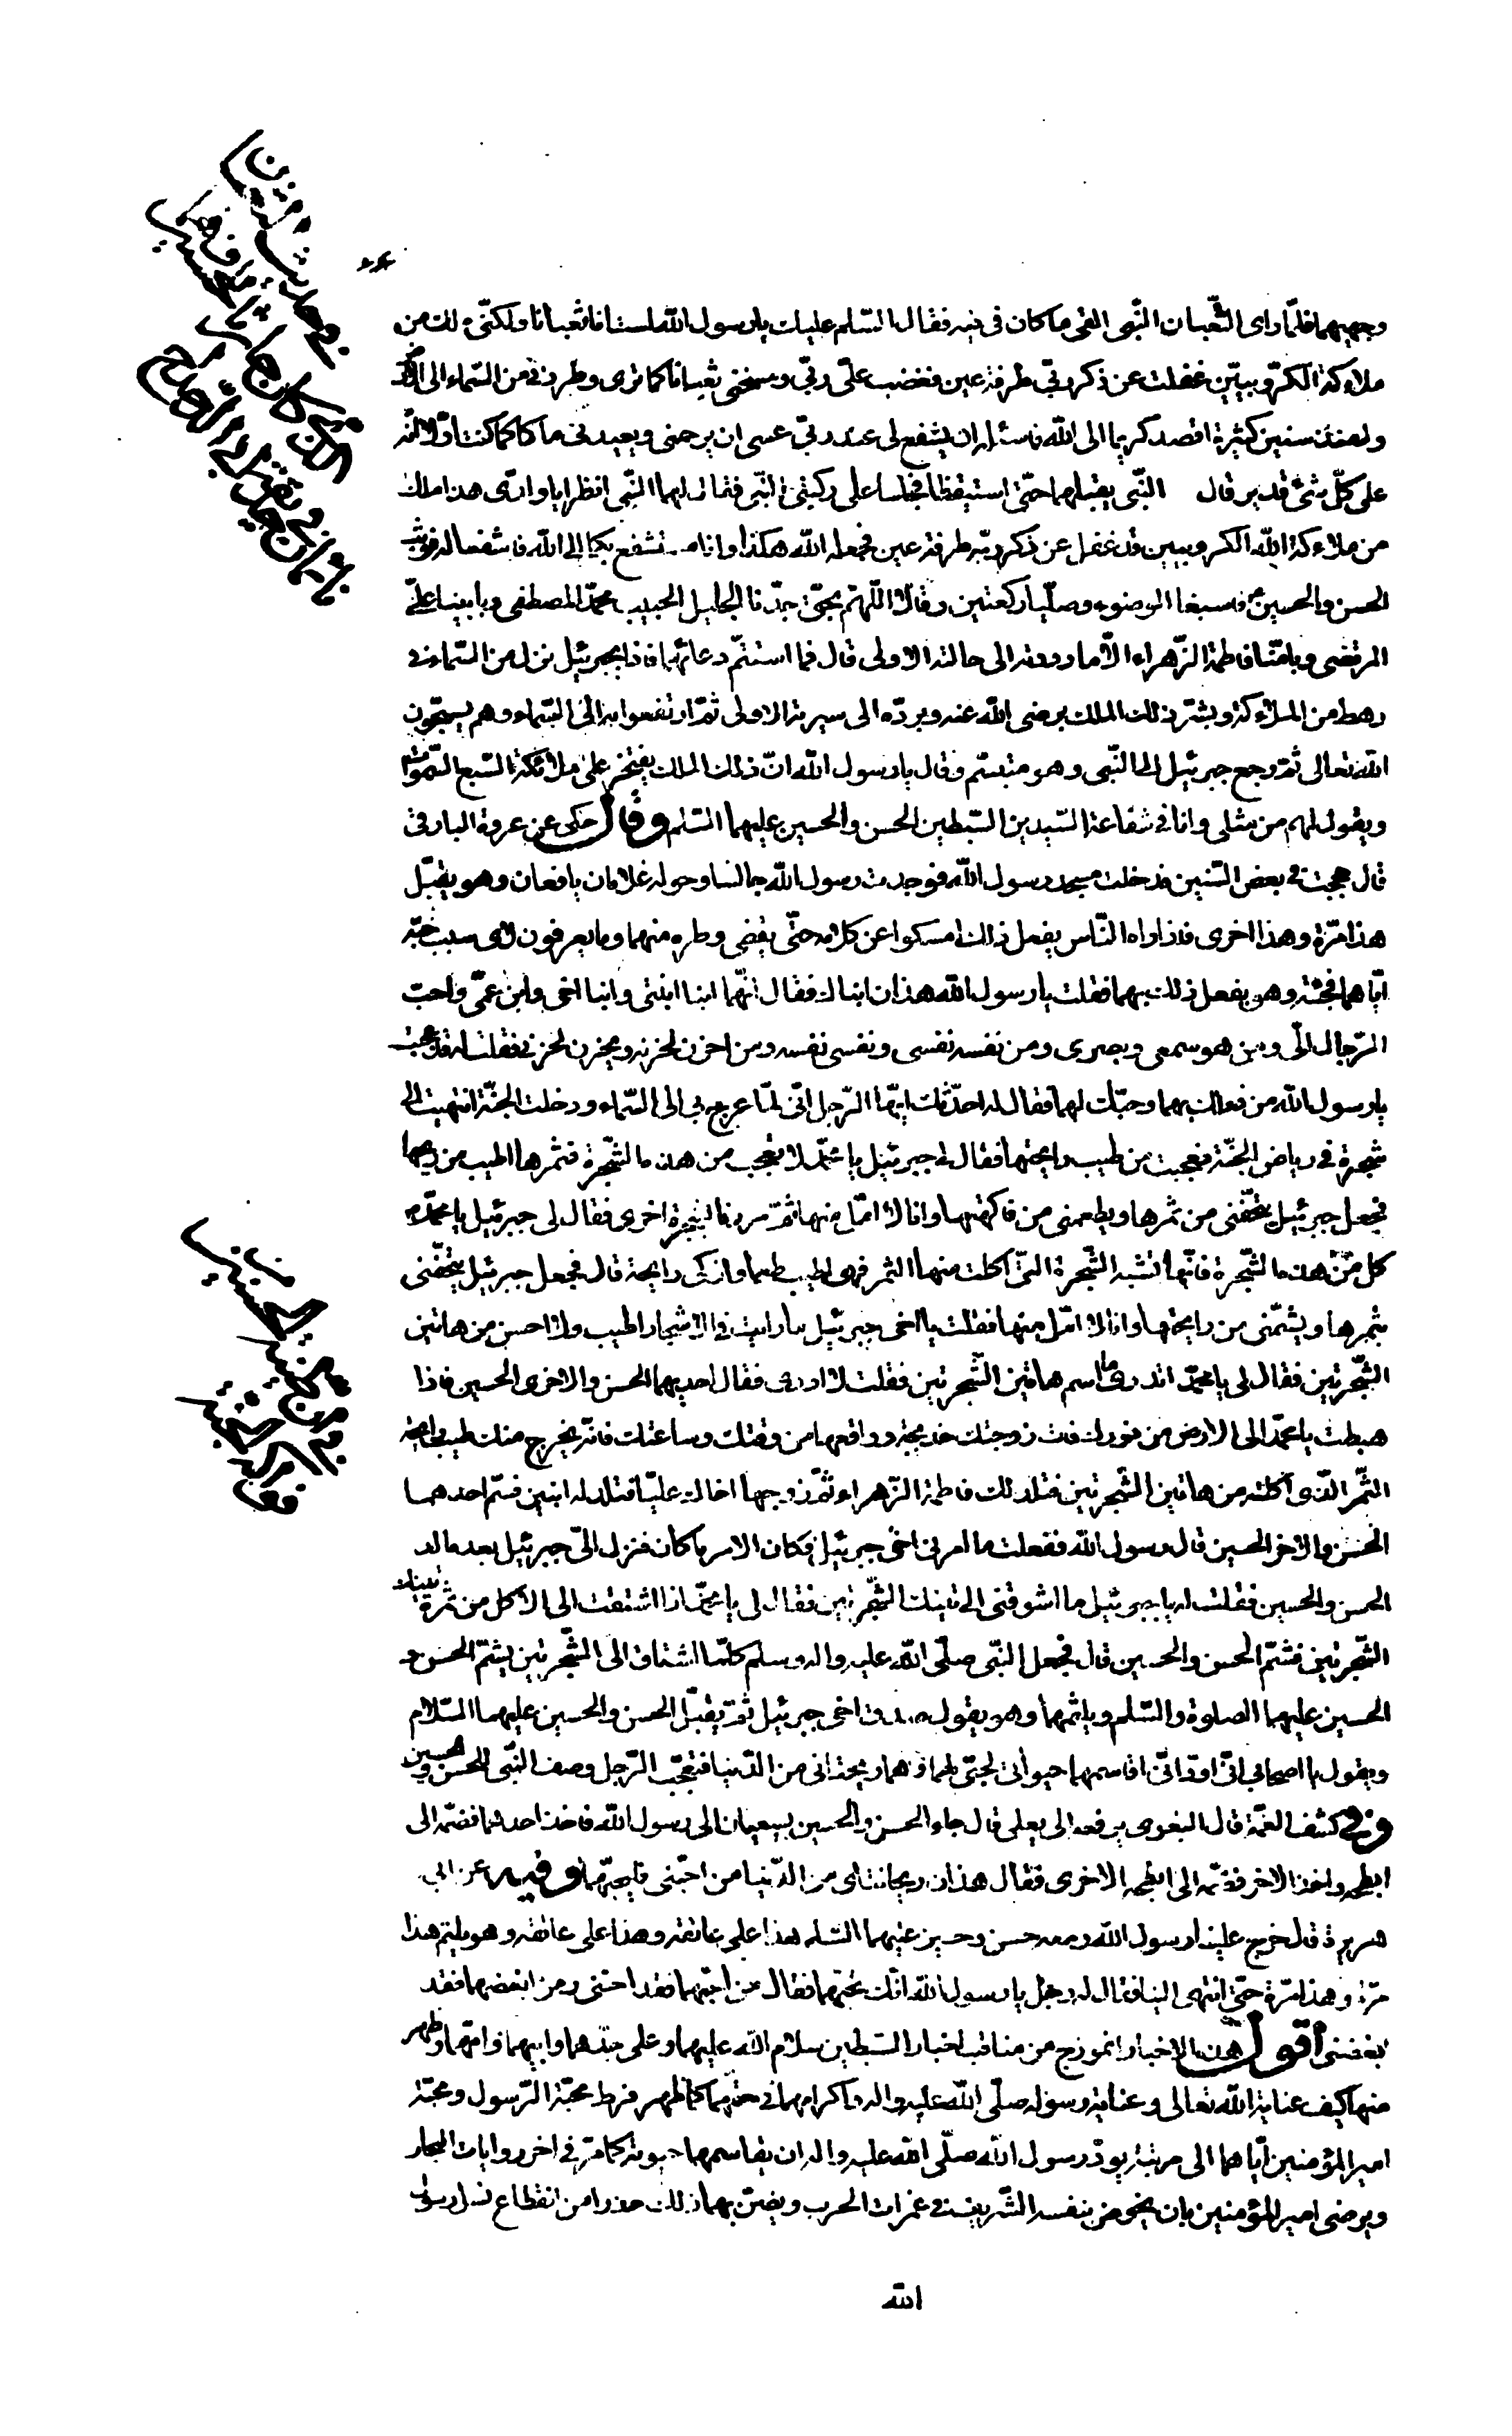 وجهيهما فلمّا رای الثّعبان النّبی القی ما كان فی فيه فقال السّلم عليك يا رسول اللّه لست انا ثعبانا ولكنّی ملك من
ملائكة الكرّوبيّين غفلت عن ذكر ربّی طرفة عين فغضب علیّ ربّی و مسخنی ثعبانا كما تری و طردنی من السّماء الی الارض
ولی منذ سنين كثيرة اقصد كريما الی اللّه فاسئله ان يشفع لی عند ربّی عسی ان يرحمنی و يعيدنی ملكا كما كنت اوّلا انّه
علی كلّ شیء قدير قال النّبی يقبلهما حتّی استيقظا فجلسا علی ركبتی النّبی فقال لهما النّبی انظرا يا ولدی هذا ملك
من ملائكة اللّه الكروبيين قد غفل عن ذكر ربّه طرفة عين فجعله اللّه هكذا وانا مستشفع بكما الی اللّه فاشفعا له فوثب
الحسن والحسين ع فاسبغا الوضوء و صلّيا ركعتين وقالا اللّهمّ بحقّ جدّنا الجليل الحبيب محمّد المصطفی و بابينا علیّ
المرتضی و بامّنا فاطمة الزّهراء الّا ما رددته الی حالته الاولی قال فما استتمّ دعائهما فاذا بجبرئيل نزل من السّماء فی
رهط من الملائكة و بشّر ذلك الملك برضی اللّه عنه و بردّه الی سيرته الاولی ثمّ ارتفعوا به الی السّماء وهم يسبّحون
اللّه تعالی ثمّ رجع جبرئيل الی النّبی وهو متبسّم وقال يا رسول اللّه انّ ذلك الملك يفتخر علی ملائكة السّبع السّموات
ويقول لهم من مثلی وانا فی شفاعة السّيدين السّبطين الحسن والحسين عليهما السّلم وقال حكی عن عروة البارقی
قال حججت فی بعض السّنين فدخلت مسجد رسول اللّه فوجدت رسول اللّه جالسا وحوله غلامان يافعان وهو يقبّل
هذا مرّة وهذا اخری فاذا راه النّاس يفعل ذلك امسكوا عن كلامه حتّی يقضی وطره منهما وما يعرفون لای سبب حبّه
ايّاهما فجئته وهو يفعل ذلك بهما فقلت يا رسول اللّه هذان ابناك فقال انّهما ابنا ابنتی وابنا اخی وابن عمّی واحبّ
الرّجال الیّ ومن هو سمعی وبصری ومن نفسه نفسی ونفسی نفسه ومن احزن لحزنه ويحزن لحزنی فقلت له قد عجبت
يا رسول اللّه من فعلك بهما وحبّك لهما فقال له احدّثك ايّها الرّجل انّی لمّا عرج بی الی السّماء ودخلت الجنّة انتهيت الی
شجرة فی رياض الجنّة فعجبت من طيب رايحتها فقال لی جبرئيل يا محمّد لا تعجب من هذه الشّجرة فثمرها اطيب من ريحها
فجعل جبرئيل يتحفنی من ثمرها ويطعمنی من فاكهتها وانا لا امّل منها ثمّ مررنا بشجرة اخری فقال لی جبرئيل يا محمّد
كل من هذه الشّجرة فانّها تشبه الشّجرة الّتی اكلت منها الثمر فهی اطيب طعما وازكی رايحة قال فجعل جبرئيل يتحفنی
بثمرها ويشمّنی من رايحتها وانا لا امّل منها فقلت يا اخی جبرئيل ما رايت فی الاشجار اطيب ولا احسن من هاتين
الشّجرتين فقال لی يا محمّد اتدری ما اسم هاتين الشّجرتين فقلت لا ادری فقال احديهما الحسن والاخری الحسين فاذا
هبطت يا محمّد الی الارض من فورك فات زوجتك خديجة وواقعها من وقتك وساعتك فانّه يخرج منك طيب رايحة
الثّمر الّذی اكلته من هاتين الشّجرتين فتلد لك فاطمة الزّهراء ثمّ زوجها اخاك عليّا فتلد له ابنين فسمّ احدهما
الحسن والاخر الحسين قال رسول اللّه ففعلت ما امرنی اخی جبرئيل فكان الامر ما كان فنزل الیّ جبرئيل بعد ما ولد
الحسن والحسين فقلت له يا جبرئيل ما اشوقنی الی تينك الشّجرتين فقال لی يا محمّد اذا اشتقت الی الاكل من ثمرة تينك
الشّجرتين فشمّ الحسن والحسين قال فجعل النّبی صلّی اللّه عليه واله وسلم كلّما اشتاق الی الشّجرتين يشمّ الحسن و
الحسين عليهما الصلوة والسّلم ويلثمهما وهو يقول صدق اخی جبرئيل ثمّ يقبّل الحسن والحسين عليهما السّلام
ويقول يا اصحابی انّی اودّ انّی اقاسمهما حيوتی لحبّی لهما فهما ريحانتای من الدّنيا فتعجّب الرّجل وصف النّبی للحسن والحسين
وفی كشف الغمّة قال البغوی يرفعه الی يعلی قال جاء الحسن والحسين يسعيان الی رسول اللّه فاخذ احدهما فضمّه الی
ابطه واخذ الاخر فضمّه الی ابطه الاخری فقال هذان ريحانتای من الدّنيا من احبّنی فليحبّهما وفيه عن ابی
هريرة قال خرج علينا رسول اللّه ومعه حسن وحسين عليهما السّلم هذا علی عاتقه وهذا علی عاتقه وهو يلثم هذا
مرّة وهذا مرّة حتّی انتهی الينا فقال له رجل يا رسول اللّه انّك تحبّهما فقال من احبّهما فقد احبّنی ومن ابغضهما فقد
ابغضنی اقول هذه الاخبار انموزج من مناقب اخبار السّبطين سلام اللّه عليهما وعلی جدّهما وابيهما وامّهما وظهر
منها كيف عناية اللّه تعالی وعناية رسوله صلّی اللّه عليه واله واكرامهما فی حقّهما كما ظهر فرط محبّة الرّسول ومحبّة
امير المؤمنين ايّاهما الی مرتبة يودّ رسول اللّه صلّی اللّه عليه واله ان يقاسمهما حيوته كما مرّ فی اخر روايات البحار
ويرضی امير المؤمنين بان يخوض بنفسه الشّريفة فی غمرات الحرب ويضنّ بهما ذلك حذرا من انقطاع نسل رسول
اللّه